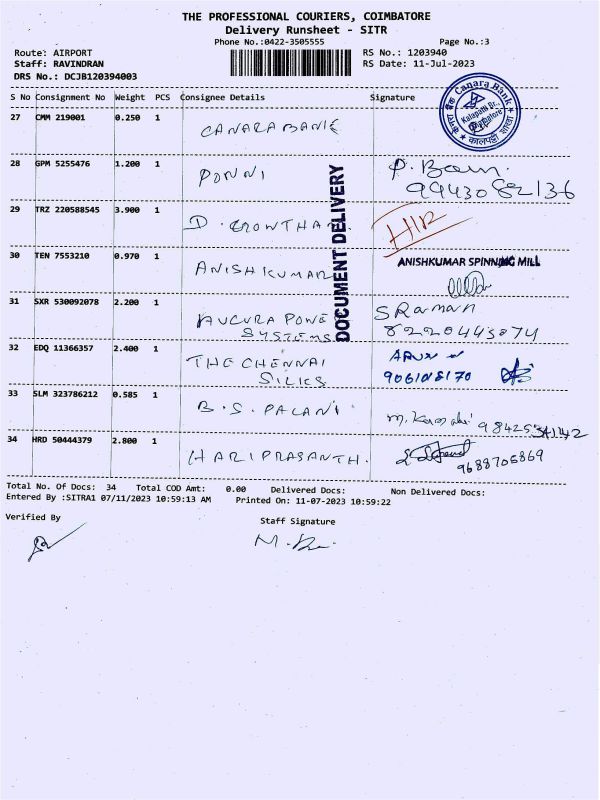 THE PROFESSIONAL COURIERS, COIMBATORE
Delivery Runsheet - SITR
Phone No.:0422-3505555 Page No.:3
Route: AIRPORT RS No.: 1203940
Staff: RAVINDRAN RS Date: 11-Jul-2023
DRS No.: DCJB120394003
S No Consignment No Weight PCS Consignee Details Signature
केनरा बैंक Canara Bank
कालपट्टी शाखा
27 CMM 219001 0.250 1 CANARA BANK
28 GPM 5255476 1.200 1 PONNI
9943082136
29 TRZ 220588545 3.900 1 D. GOWTHAM
DOCUMENT DELIVERY
30 TEN 7553210 0.970 1 ANISHKUMAR ANISHKUMAR SPINNING MILL
31 SXR 530092078 2.200 1 AUCURA POWE SRaman
SYSTEMS 8220443874
32 EDQ 11366357 2.400 1 THE CHENNAI ARUN
SILKS
33 SLM 323786212 0.585 1 B.S. PALANI
34 HRD 50444379 2.800 1 HARIPRASANTH.
9688705869
Total No. Of Docs: 34 Total COD Amt: 0.00 Delivered Docs: Non Delivered Docs:
Entered By :SITRA1 07/11/2023 10:59:13 AM Printed On: 11-07-2023 10:59:22
Verified By Staff Signature